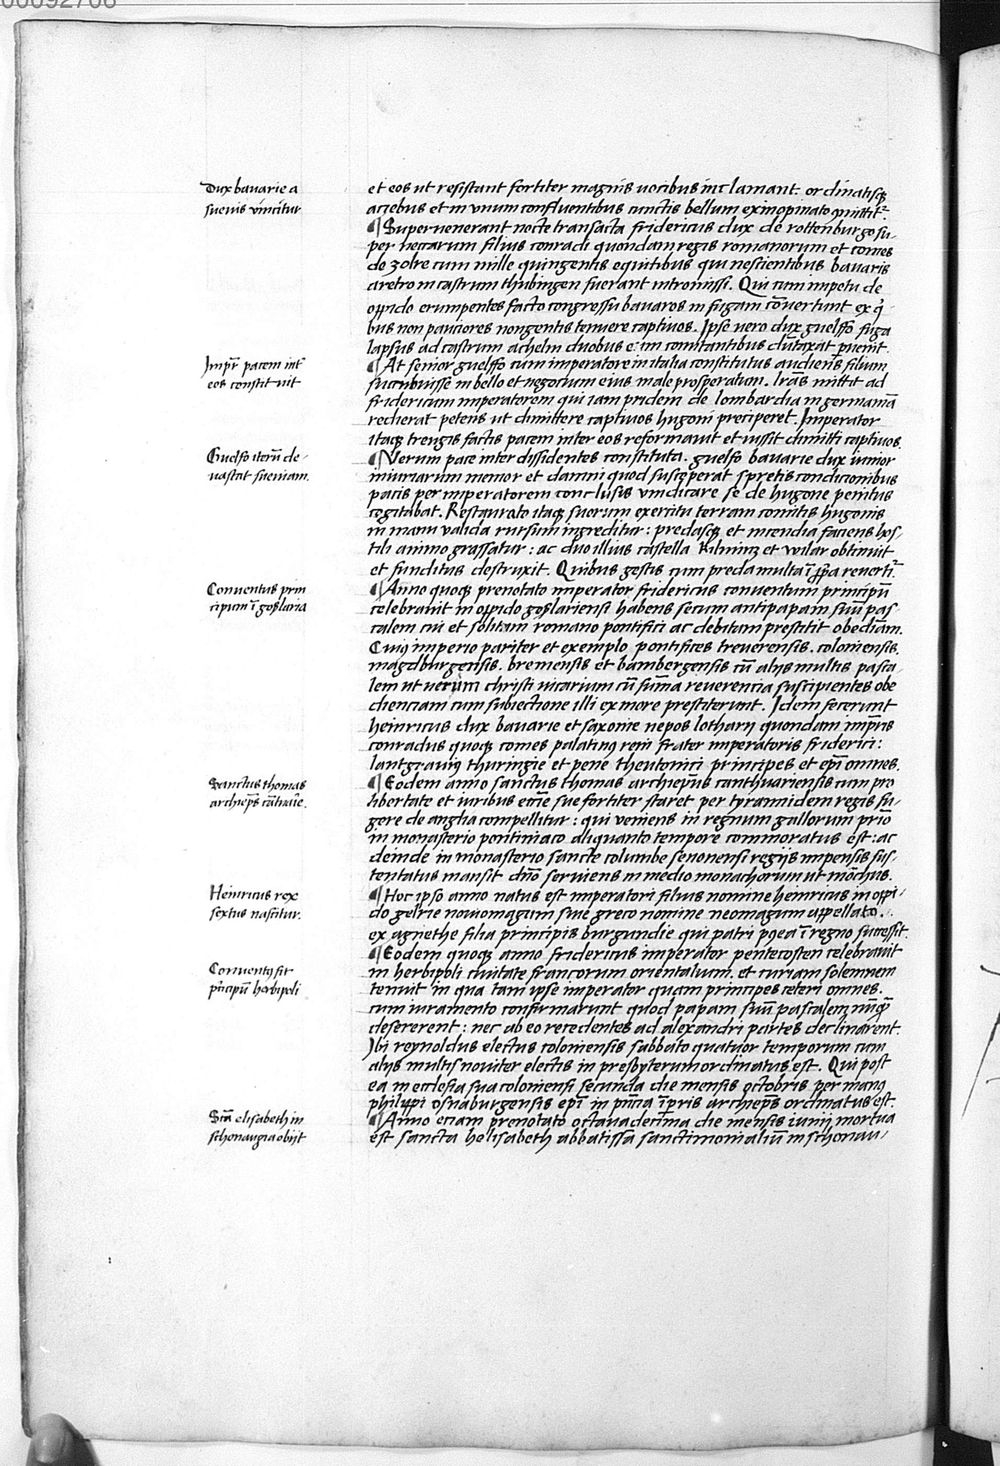 00092706
Dux bavarie a
suevis vincitur
et eos ut resistant fortiter magnis vocibus inclamant. ordinatisq;
aciebus et in vnum confluentibus cunctis bellum eximopinato mittit̄.
¶ Supervenerant nocte transacta fridericus dux de rottenburgo su-
per neccarum filius conradi quondam regis romanorum et comes
de zolre cum mille quingentis equitibus qui nescientibus bavaris
a retro in castrum thubingen fuerant intromissi. Qui cum impetu de
oppido erumpentes facto congressu bavaros in fugam cōvertunt ex q̄-
bus non pauciores nongentis tenuere captivos. Ipse vero dux guelffo fuga
lapsus ad castrum achelm duobus eum comitantibus dūtaxat pervenit.
Impr̄ pacem int̄
eos constituit
¶ At senior guelffo cum imperatore in italia constitutus audiens filium
succubuisse in bello et negocium eius male prosperatum. lr̄as mittit ad
fridericum imperatorem qui iam pridem de lombardia in germaniā
redierat petens ut dimittere captivos hugoni preciperet. Imperator
itaq; treugis factis pacem inter eos reformavit et iussit dimitti captivos.
Guelfo iterū de-
vastat sueviam.
¶ Verum pace inter dissidentes constituta. guelfo bavarie dux iunior
iniuriarum memor et damni quod susceperat spretis condicionibus
pacis per imperatorem conclusis vindicare se de hugone penitus
cogitabat. Restaurato itaq; suorum exercitu terram comitis hugonis
in manu valida rursum ingreditur: predasq; et incendia faciens hos-
tili animo grassatur: ac duo illius castella Kilminz et wilar obtinuit
et funditus destruxit. Quibus gestis cum preda multa ī ppa revertit̄.
Conventus prin
cipum ī goslaria
¶ Anno quoq; prenotato imperator fridericus conventum principū
celebravit in oppido goslariensi habens secum antipapam suū pas-
calem cui et solitam romano pontifici ac debitam prestitit obediam.
Cuiꝰ imperio pariter et exemplo pontifices treverensis. coloniensis.
magdburgensis. bremensis et bambergensis cū alijs multis pasca-
lem ut verum christi vicarium cū sum̄a reverencia suscipientes obe
dienciam cum subiectione illi ex more prestiterunt. Idem fecerunt
heinricus dux bavarie et saxonie nepos lotharij quondam impr̄is
conradus quoq; comes palatinꝰ reni frater imperatoris friderici:
lantgravij thuringie et pene theutonici principes et ep̄i omnes.
Sanctus thomas
archiep̄s cāthuarie.
¶ Eodem anno sanctus thomas archiep̄us canthuariensis cum pro
libertate et iuribus ecc̄ie sue fortiter staret per tyrannidem regis fu-
gere de anglia compellitur: qui veniens in regnum gallorum prīo
in monasterio pontiniaco aliquanto tempore commoratus est: ac
deinde in monasterio sancte columbe senonensi regijs impensis sus-
tentatus mansit dn̄o serviens in medio monachorum ut mōchus.
Heinricus rex
sextus nascitur.
¶ Hoc ipso anno natus est imperatori filius nomine heinricus in oppi-
do gelrie noviomagum sive greco nomine neomagum appellato.
ex agnethe filia principis burgundie qui patri p̄ꝯea ī regno successit.
Conventꝰ fit
prīcipū herbipoli
¶ Eodem quoq; anno fridericus imperator pentecosten celebravit
in herbipoli civitate francorum orientalium. et curiam solemnem
tenuit in qua tam ipse imperator quam principes ceteri omnes.
cum iuramento confirmarunt quod papam suū pascalem nūq̄
desererent: nec ab eo recedentes ad alexandri partes declinarent.
Ibi reynoldus electus coloniensis sabbato quatuor temporum cum
alijs multis noviter electis in presbyterum ordinatus est. Qui post
ea in ecclesia sua coloniensi secunda die mensis octobris per manꝰ
philippi osnaburgensis ep̄i in pn̄cia īpr̄is archiep̄s ordinatus est.
Sc̄a elisabeth in
schonaugia obijt
¶ Anno etiam prenotato octavadecima die mensis iunij mortua
est sancta helisabeth abbatissa sanctimonialiū in schonau-